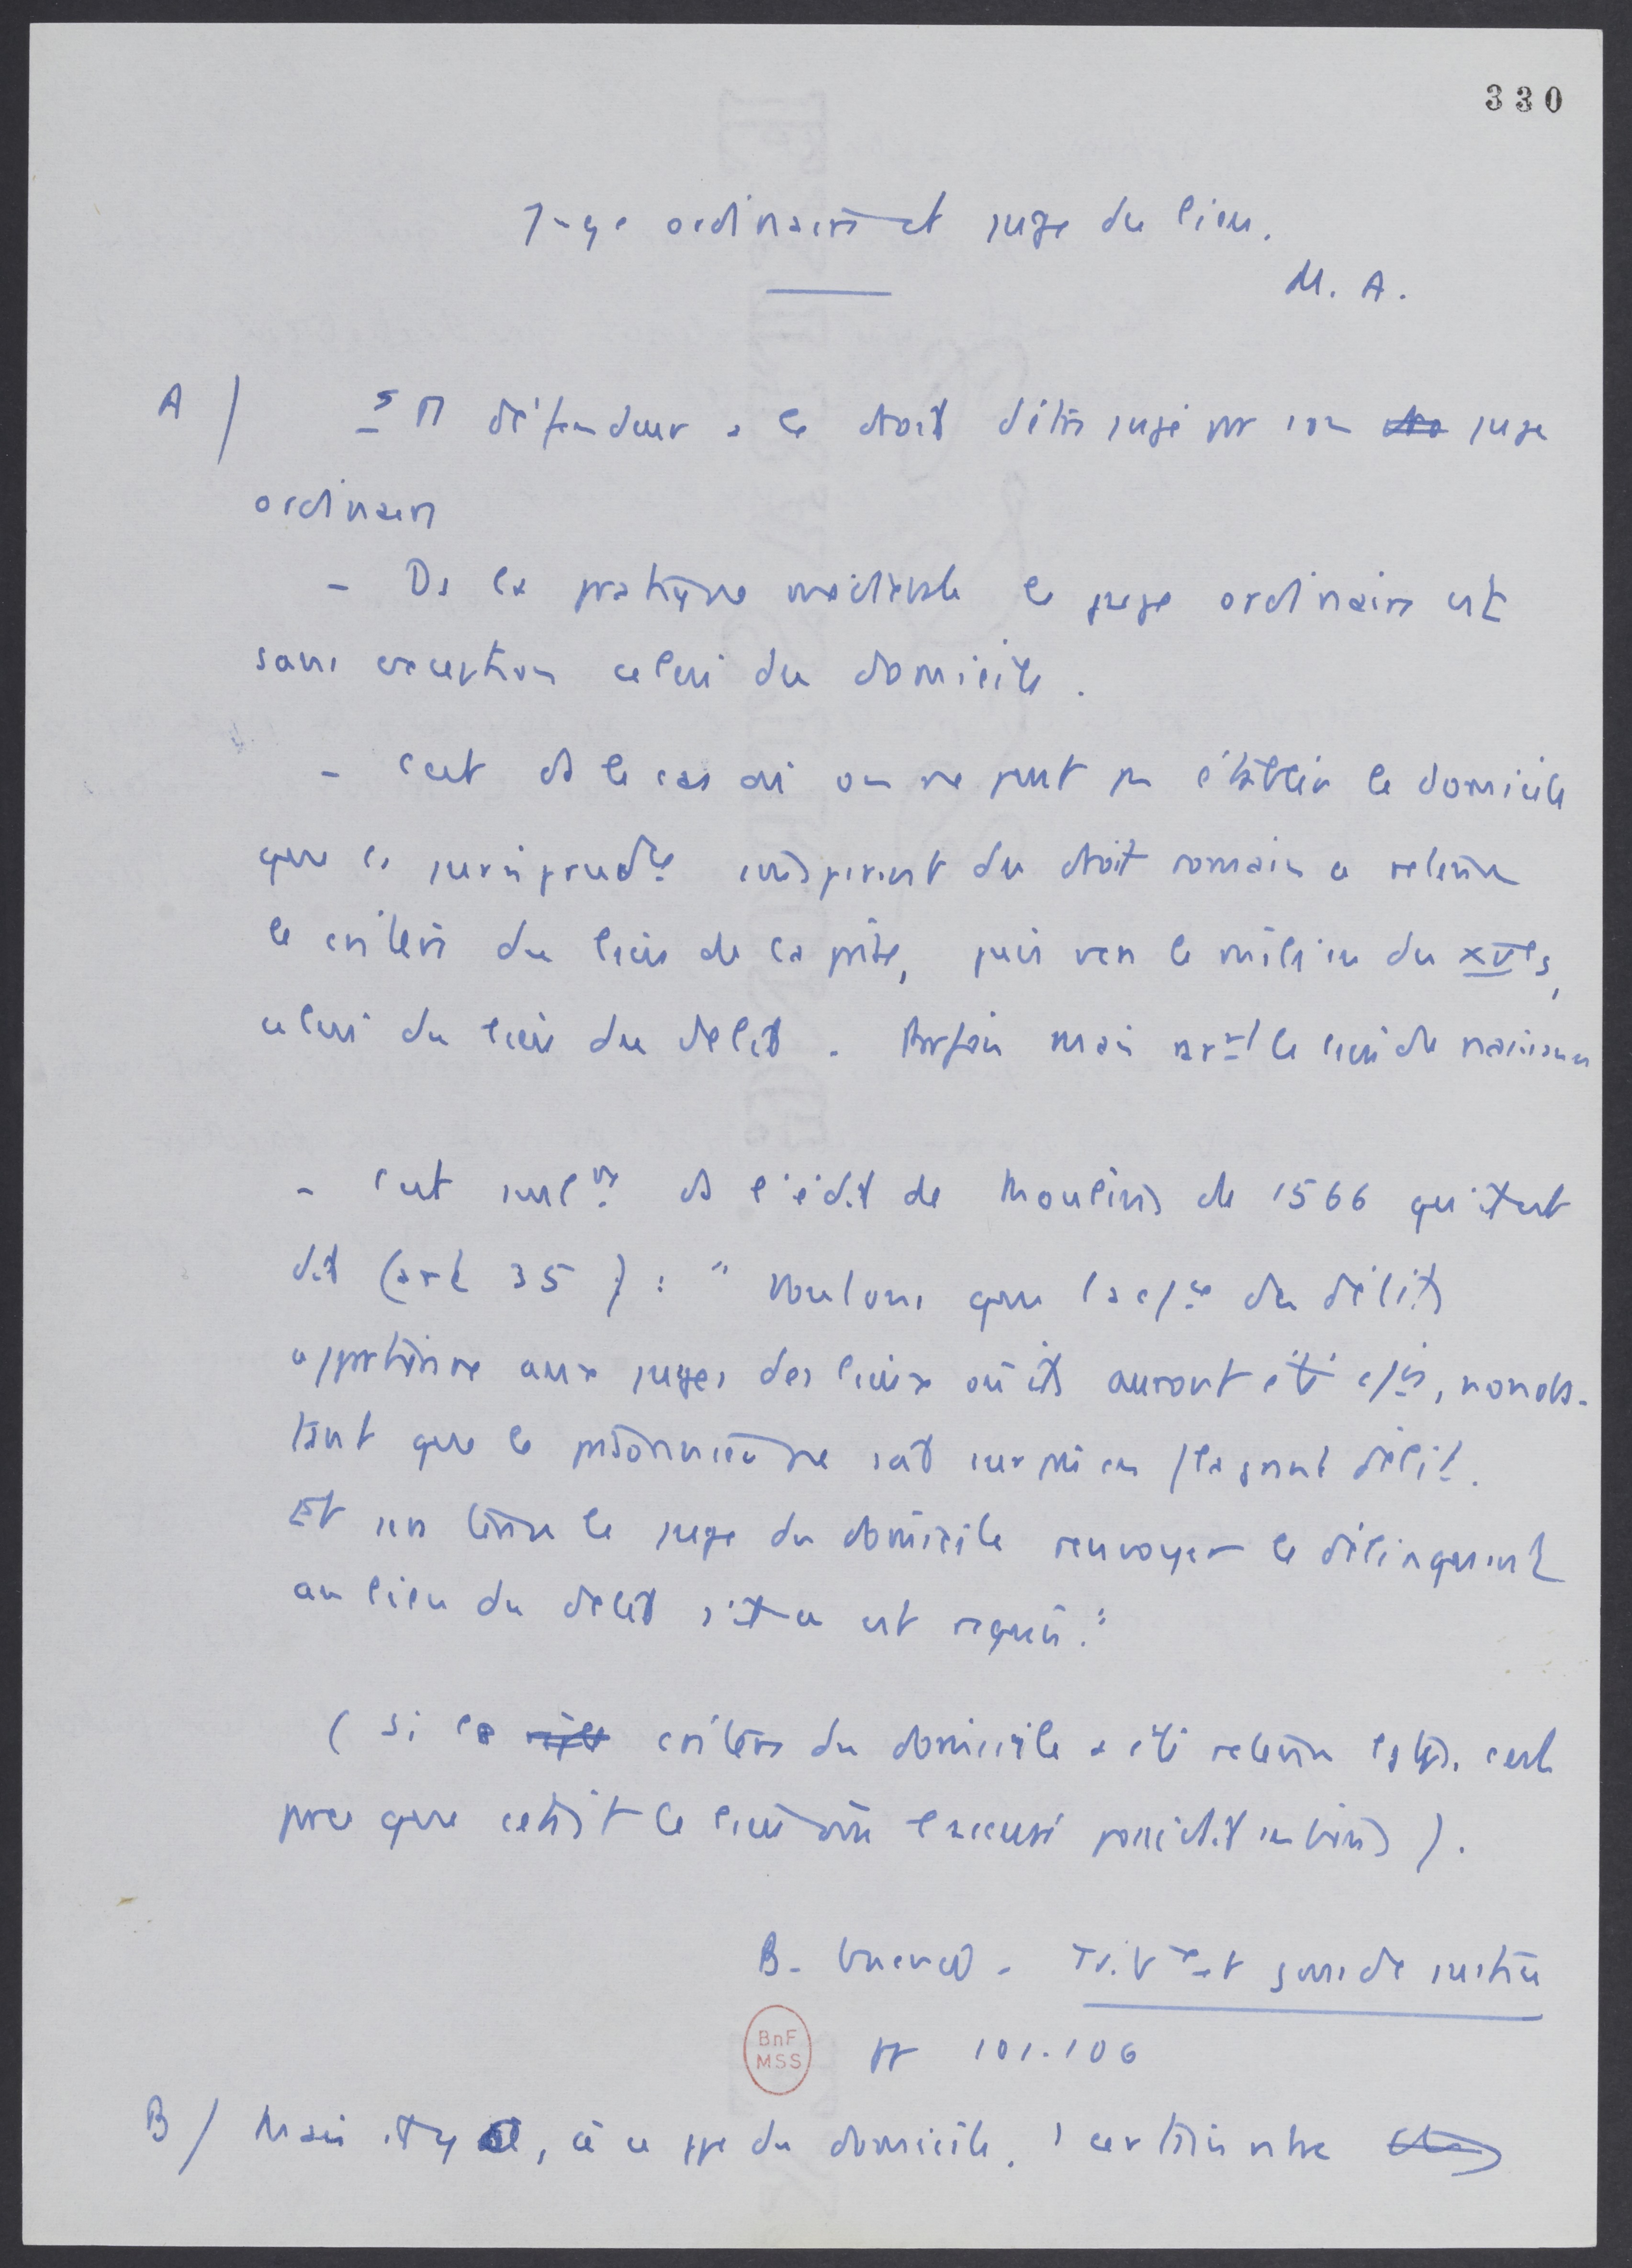 330
Juge ordinaire et juge du lieu.
M. A.
A / défendeur a le droit d'être jugé par son juge
ordinaire
- Ds la pratique médiévale le juge ordinaire est
sans exception celui du domicile.
- C'est ds le cas où on ne peut pas établir le domicile
que la jurisprudce s'inspirant du droit romain a retenu
le critère du lieu de la prise, puis vers le milieu du XVe s,
celui du lieu du délit. Parfois mais le lieu de naissance
- C'est seult ds l'édit de Moulins de 1566 qu'il est
dit (art 35) : " Voulons que la csce des délits
appartienne aux juges des lieux où ils auront été cis, nonobs-
tant que le prisonnier ne soit surpris en flagrant délit.
Et sera tenu le juge du domicile renvoyer le délinquant
au lieu du délit s'il en est requis."
( Si le critère du domicile a été retenu c'est
parce que c'était le lieu où l'accusé possédait ses biens ).
B. Guenée. Tribx et gens de justice
pp 101-106
B / Mais il y a, à ce ppe du domicile, certain nbre